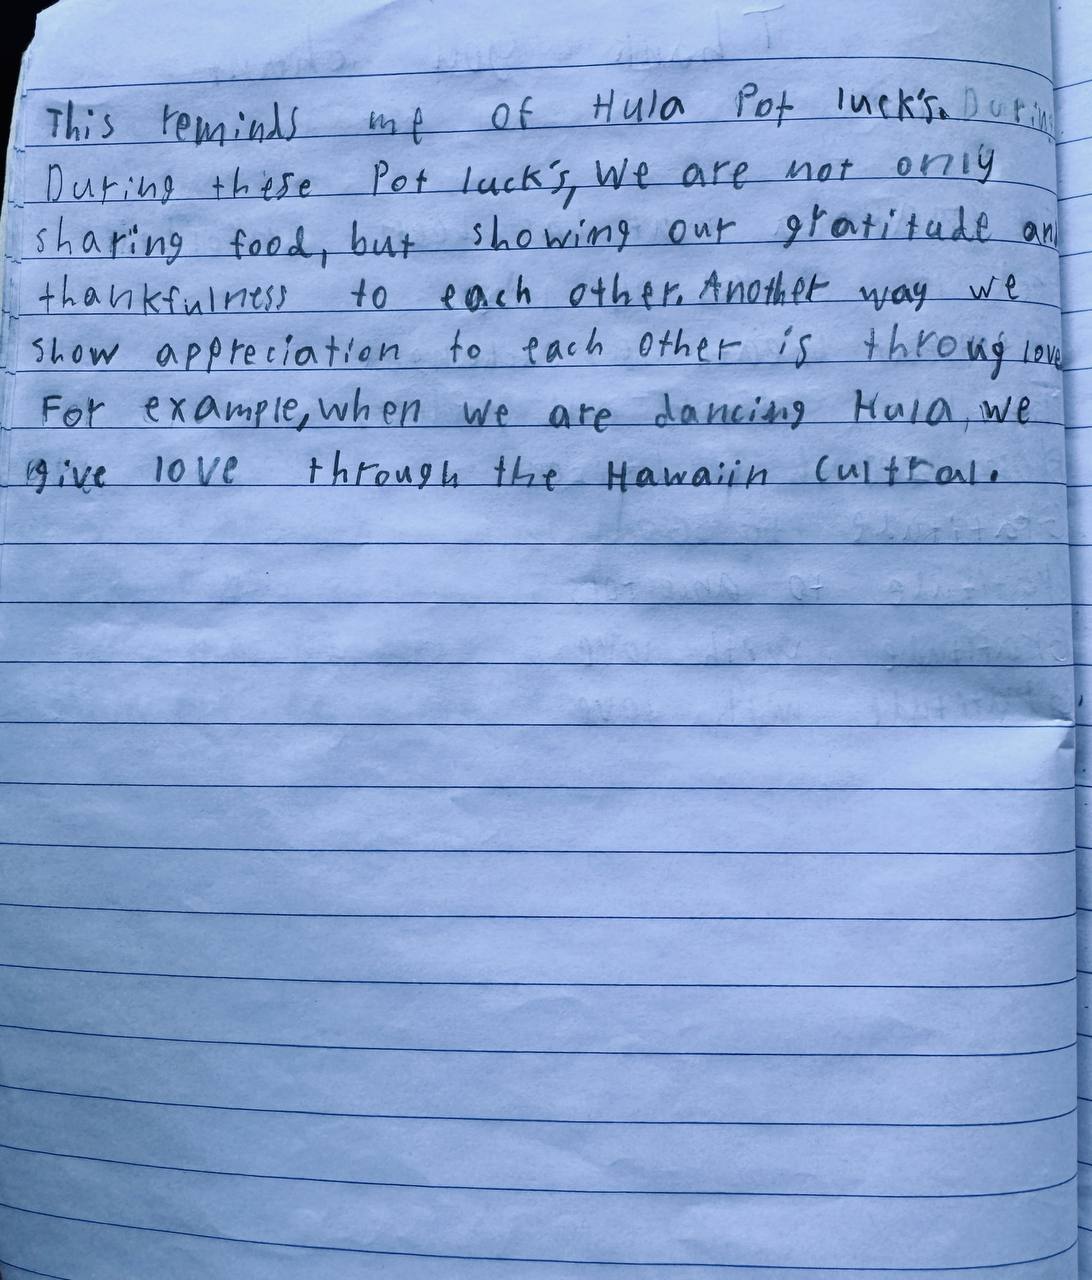 This reminds me of Hula Pot luck's. During
During these Pot luck's, We are not only
sharing food, but showing our gratitude an
thankfulness to each other. Another way we
show appreciation to each other is throug love
For example, when we are dancing Hula, we
give love through the Hawaiin Cultral.